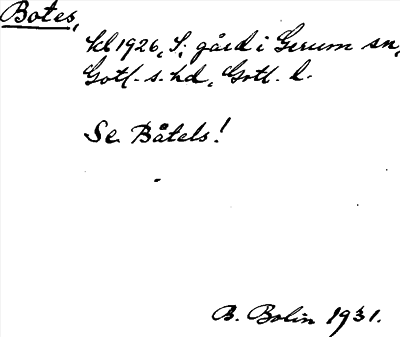 Botes,
Kl 1926, S; gård i Gerum sn,
Gotl. s. hd, Gotl. l.
Se Båtels!
B. Bolin 1931.